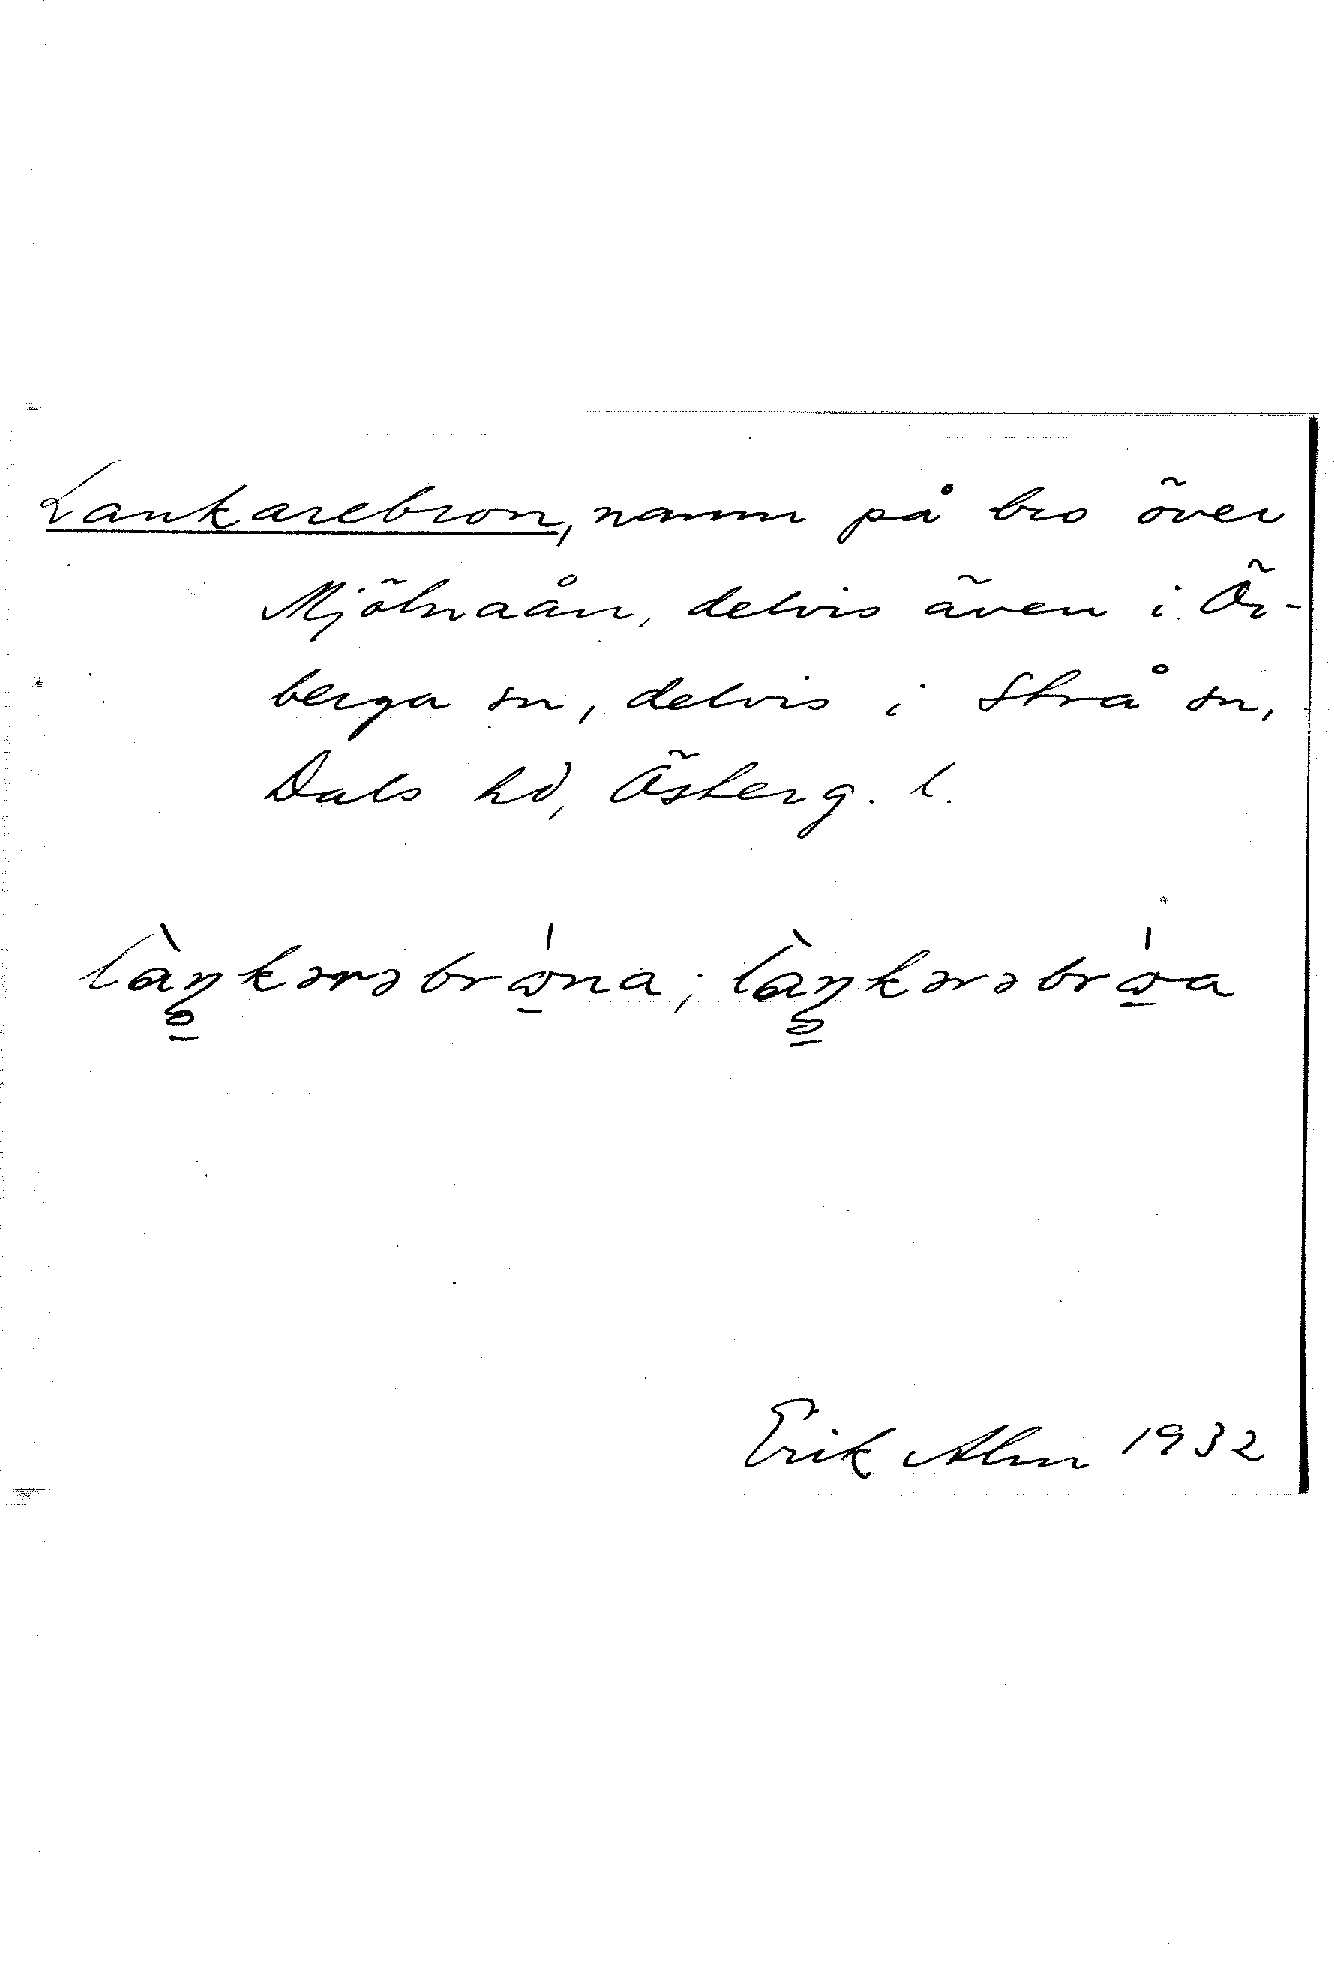 Lankarebron, namn på bro över
Mjölnaån, delvis även i Ör-
berga sn, delvis i Strå sn,
Dals hd, Österg. l.
làŋkərəbrώ̲na; làŋkərəbrώ̲a
Erik Alm 1932